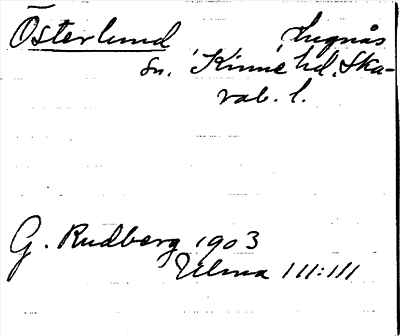 Österlund Lugnås
sn. Kinne hd. Ska-
rab. l.
G. Rudberg 1903
Ulma 111:111